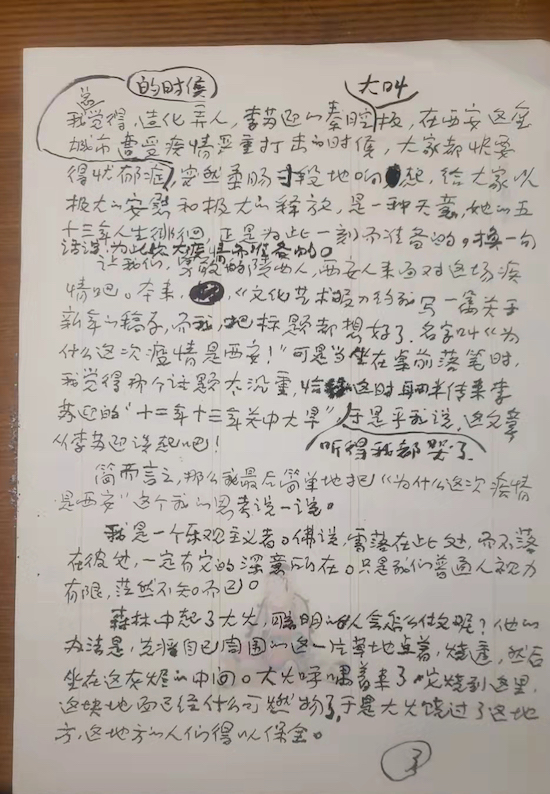 的时候
大叫
总
我觉得,造化弄人,李苏迎的秦腔板,在西安这座
城市遭受疫情严重打击的时候,大家都快要
得忧郁症,突然柔肠寸段地响起,给大家以
极大的安慰和极大的释放,是一种天意,她的五
十三年人生徘徊,正是为此一刻而准备的。换一句
话说,为此次大疫情而准备的。
让我们,勇敢的陕西人,西安人来面对这场疫
情吧。本来,《文化艺术报》约我写一篇关于
新年的稿子,而我,把标题都想好了,名字叫《为
什么这次疫情是西安!”可是当坐在桌前落笔时,
我觉得那个话题太沉重,恰这时耳畔传来李
苏迎的“十二年十三年关中大旱”,于是乎我说,这文章
从李苏迎说起吧!
听得我都哭了
简而言之,那么我最后简单地把《为什么这次疫情
是西安”这个我的思考说一说。
我是一个乐观主义者。佛说,雪落在此处,而不落
在彼处,一定有它的深意所在。只是我们普通人视力
有限,茫然不知而已。
森林中起了大火,聪明的人会怎么做呢?他的
办法是,先将自己周围的这一片草地点着,烧透,然后
坐在这灰烬的中间。大火呼啸着来了,烧到这里,
这块地面已经什么可燃物了,于是大火饶过了这地
方,这地方的人们得以保全。
3